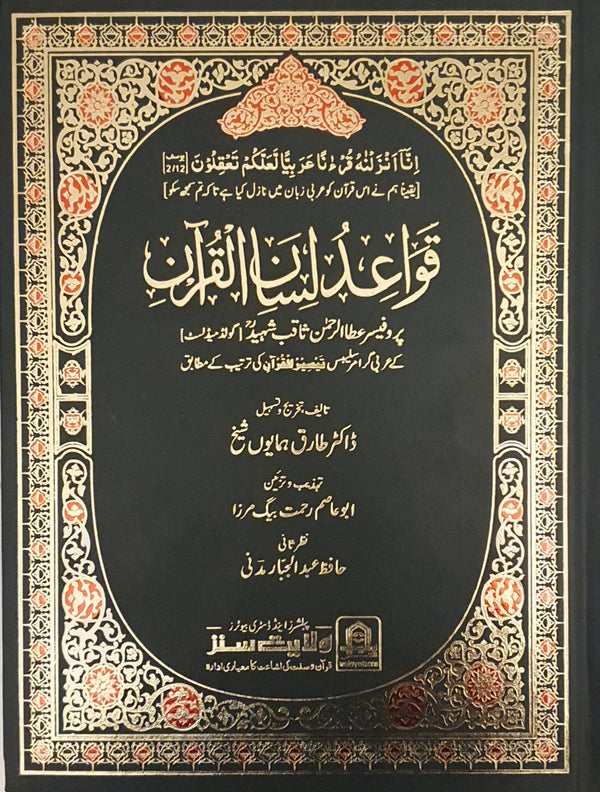 اِنَّآ اَنْزَلْنٰهُ قُرْءٰنًا عَرَبِیًّا لَّعَلَّكُمْ تَعْقِلُوْنَ [یوسف 2/12]
[یقیناً ہم نے اس قرآن کو عربی زبان میں نازل کیا ہے تاکہ تم سمجھ سکو]
قَوَاعِدُ لِسَانِ الْقُرْآنِ
پروفیسر عطا الرحمٰن ثاقب شہیدؒ [گولڈ میڈلسٹ]
کے عربی گرامر سلیبس تَیْسِیْرُ الْقُرْآن کی ترتیب کے مطابق
تالیف، تخریج و تسہیل
ڈاکٹر طارق ہمایوں شیخ
تہذیب و تزئین
ابو عاصم رحمت بیگ مرزا
نظر ثانی
حافظ عبدالجبار مدنی
پبلشرز اینڈ ڈسٹری بیوٹرز
ولایت سنز
قرآن و سنت کی اشاعت کا معیاری ادارہ